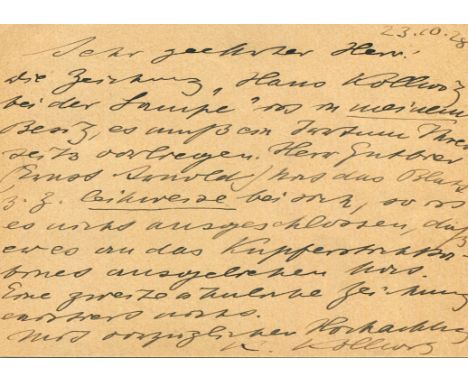 23.10.28
Sehr geehrter Herr!
Die Zeichnung "Hans Kollwitz
bei der Lampe" ist in meinem
Besitz, es muß ein Irrtum Ihrer
seits vorliegen. Herr Gutbier
(Ernst Arnold) hat das Blatt
z. Z. leihweise bei sich, so ist
es nicht ausgeschlossen, daß
er es an das Kupferstichka-
binet ausgeliehen hat.
Eine zweite ähnliche Zeichnung
existiert nicht.
Mit vorzüglicher Hochachtung
K. Kollwitz